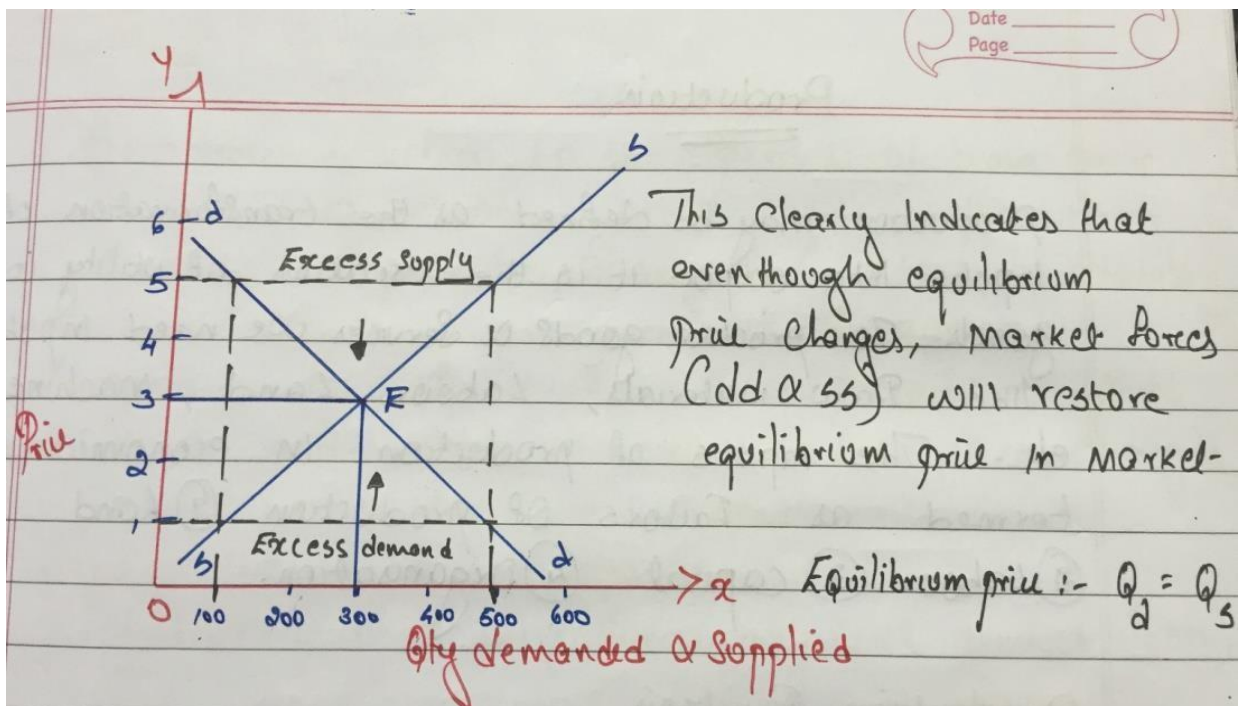 Date
Page
Y
s
6
d
5
Excess supply
4
3
E
Price
2
1
s
Excess demand
d
0
100
200
300
400
500
600
x
Qty demanded & Supplied
This Clearly Indicates that
eventhough equilibrium
price Changes, Market forces
(dd & ss) will restore
equilibrium price in Market-
Equilibrium price :- Qd = Qs